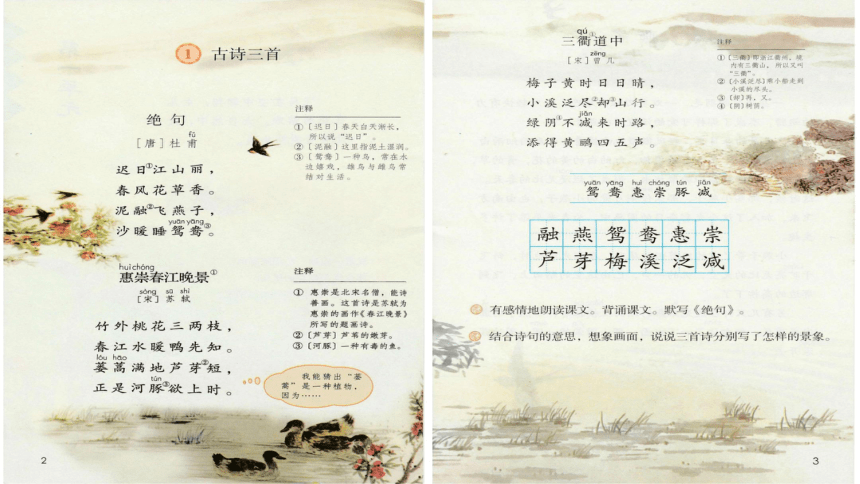 1 古诗三首
绝句
fǔ
[唐] 杜甫
迟日①江山丽，
春风花草香。
泥融②飞燕子，
yuān yāng
沙暖睡鸳鸯③。
注释
① [迟日] 春天白天渐长，
所以说“迟日”。
② [泥融] 这里指泥土湿润。
③ [鸳鸯] 一种鸟，常在水
边嬉戏，雄鸟与雌鸟常
结对生活。
huì chóng
惠崇春江晚景①
sòng sū shì
[宋] 苏轼
竹外桃花三两枝，
春江水暖鸭先知。
lóu hāo
蒌蒿满地芦芽②短，
tún
正是河豚③欲上时。
注释
① 惠崇是北宋名僧，能诗
善画。这首诗是苏轼为
惠崇的画作《春江晚景》
所写的题画诗。
② [芦芽] 芦苇的嫩芽。
③ [河豚] 一种有毒的鱼。
我能猜出“蒌
蒿”是一种植物，
因为……
2
qú
三衢①道中
zēng
[宋] 曾几
梅子黄时日日晴，
小溪泛尽②却③山行。
jiǎn
绿阴④不减来时路，
添得黄鹂四五声。
注释
① [三衢] 即浙江衢州，境
内有三衢山，所以又叫
“三衢”。
② [小溪泛尽] 乘小船走到
小溪的尽头。
③ [却] 再，又。
④ [阴] 树荫。
yuān yāng huì chóng tún jiǎn
鸳 鸯 惠 崇 豚 减
融 燕 鸳 鸯 惠 崇
芦 芽 梅 溪 泛 减
有感情地朗读课文。背诵课文。默写《绝句》。
结合诗句的意思，想象画面，说说三首诗分别写了怎样的景象。
3